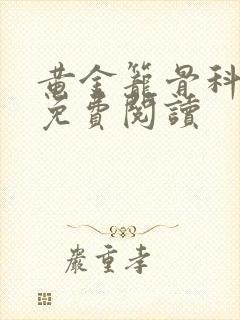 黄金籠骨科
免費閱讀
嚴重孝